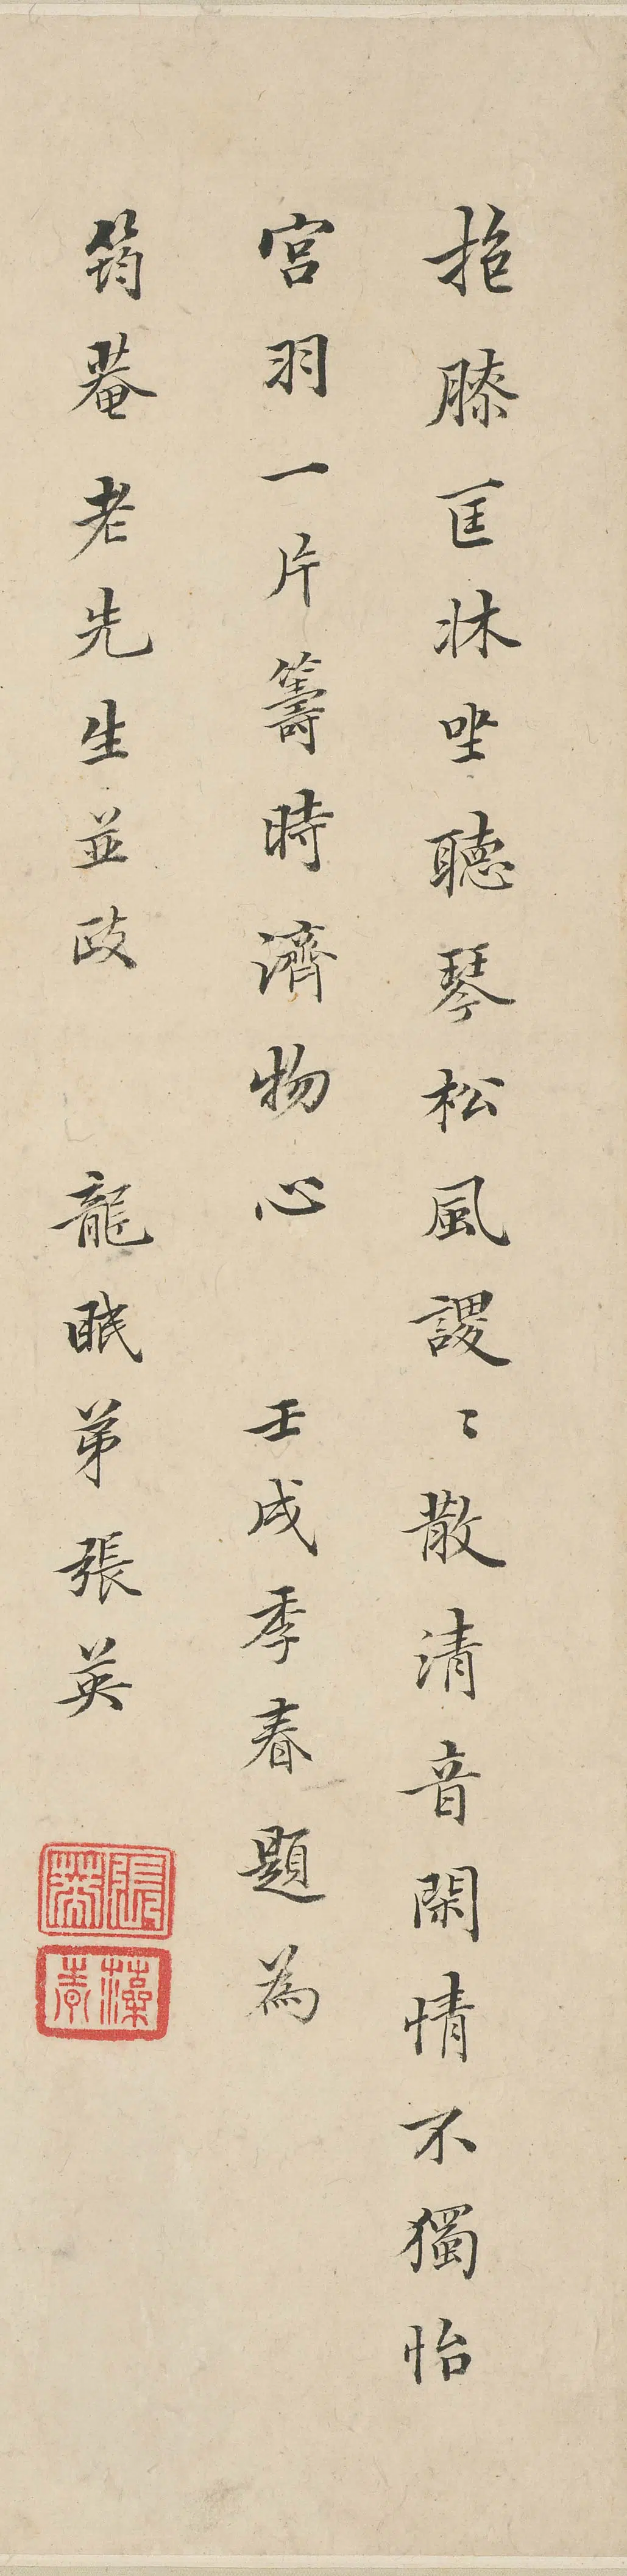 抱膝匡牀坐聽琴松風謖〻散清音閑情不獨怡
宮羽一片籌時濟物心 壬戌季春題為
筠菴老先生並政 龍眠弟張英
張英